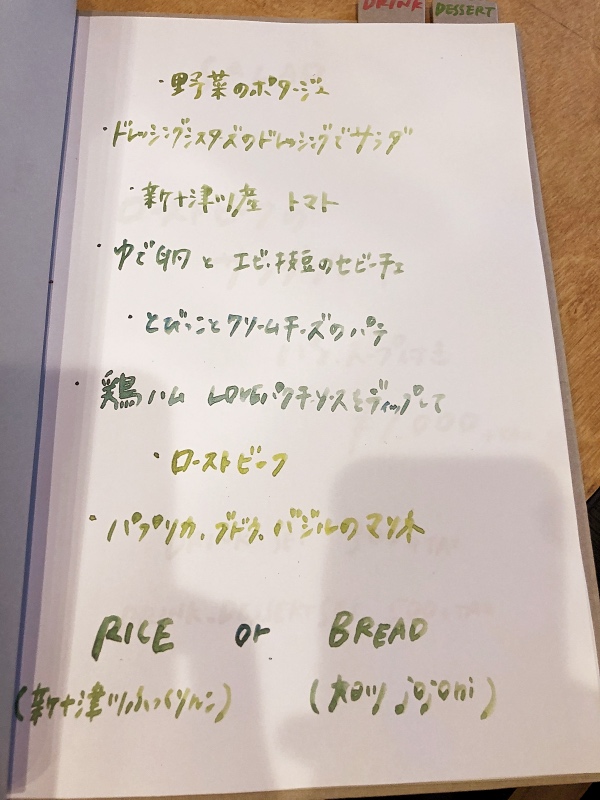 DRINK
DESSERT
・野菜のポタージュ
・ドレッシングシスターズのドレッシングでサラダ
・新十津川産 トマト
・ゆで卵と エビ、枝豆のセビーチェ
・とびっことクリームチーズのパテ
・鶏ハム LOVEパクチーソースをディップして
・ローストビーフ
・パプリカ、ブドウ、バジルのマリネ
RICE or BREAD
(新十津川ふっくりんこ)
( jojoni)